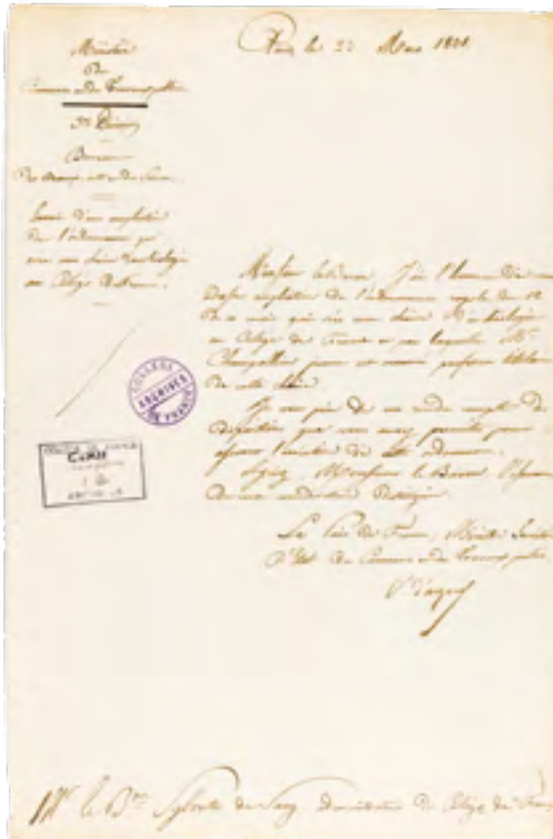 Ministère
du
Commerce et des Travaux publics
3e Division
Bureau
des Beaux-arts et des Sciences
Envoi d'une ampliation
de l'ordonnance qui
crée une chaire d'archéologie
au Collège de France.
Paris, le 23 Mars 1831.
Monsieur le Baron, J'ai l'honneur de vous
ampliation de l'ordonnance royale du 12
de ce mois qui crée une chaire d'archéologie
au Collège de France et par laquelle Mr
Champollion jeune est nommé professeur titulaire
de cette chaire.
Je vous prie de me rendre compte des
dispositions que vous aurez prises pour
l'exécution de cette ordonnance.
Agréez, Monsieur le Baron, l'assurance
de ma considération distinguée.
Le Pair de France, Ministre Secrétaire
d'Etat du Commerce et des Travaux publics.
Cte d'Argout
COLLEGE
ARCHIVES
DE FRANCE
COLLEGE DE FRANCE
ARCHIVES
Mr le Bon Sylvestre de Sacy, Administrateur du Collège de France